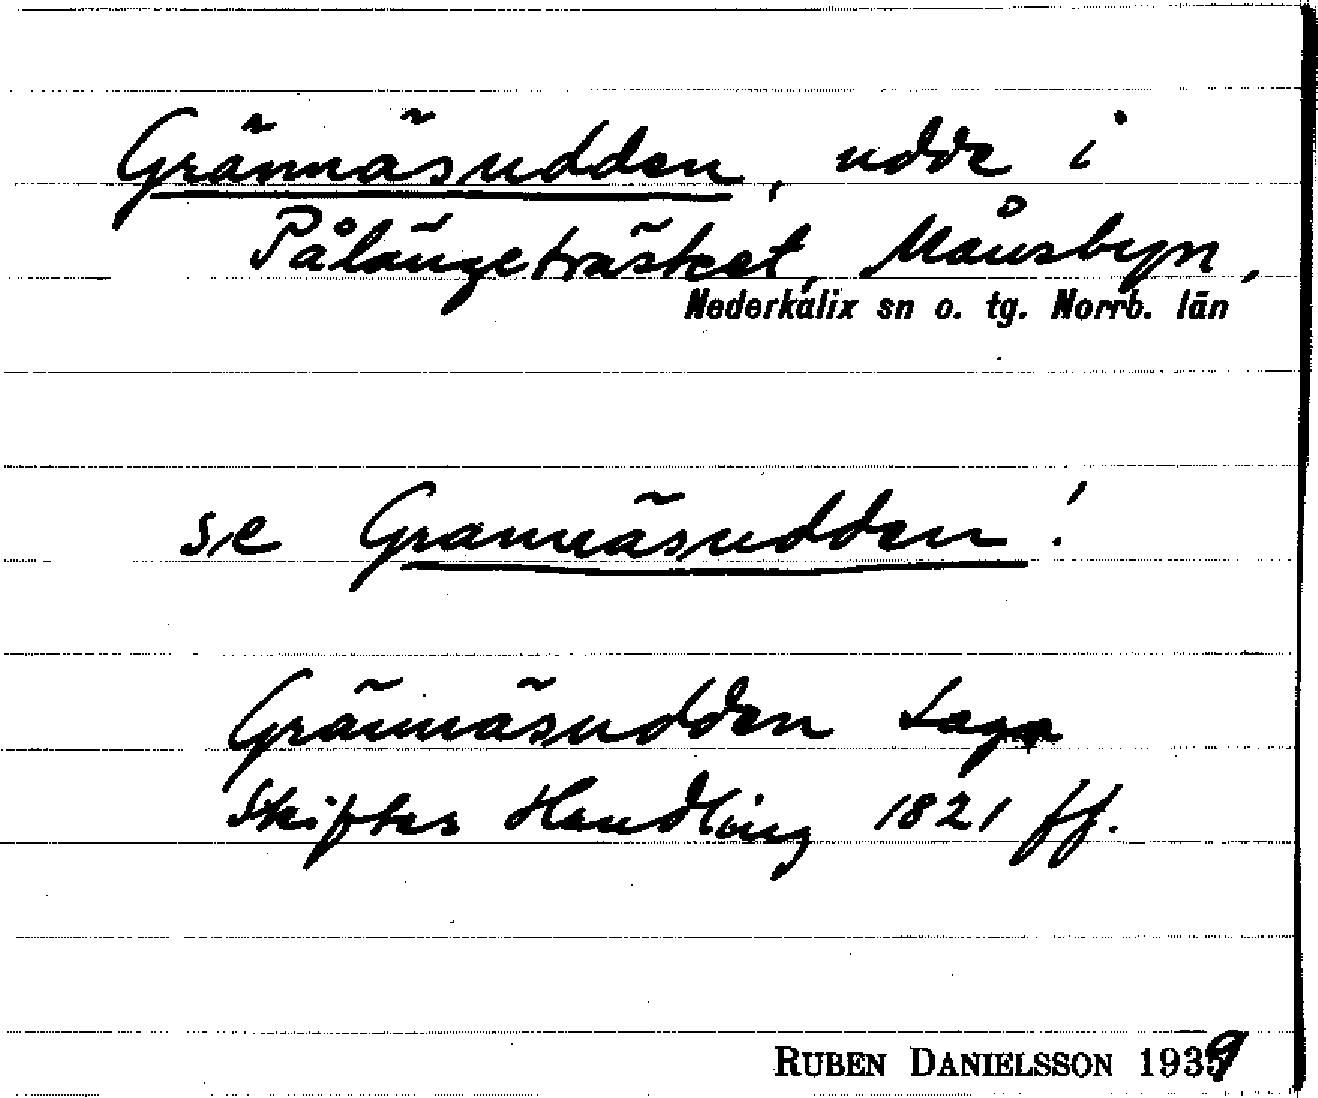 Grännäsudden, udde i
Pålängeträsket, Månsbyn,
Nederkalix sn o. tg. Norrb. län
se Grannäsudden!
Grännäsudden Laga
Skiftes Handling 1821 ff.
RUBEN DANIELSSON 1939